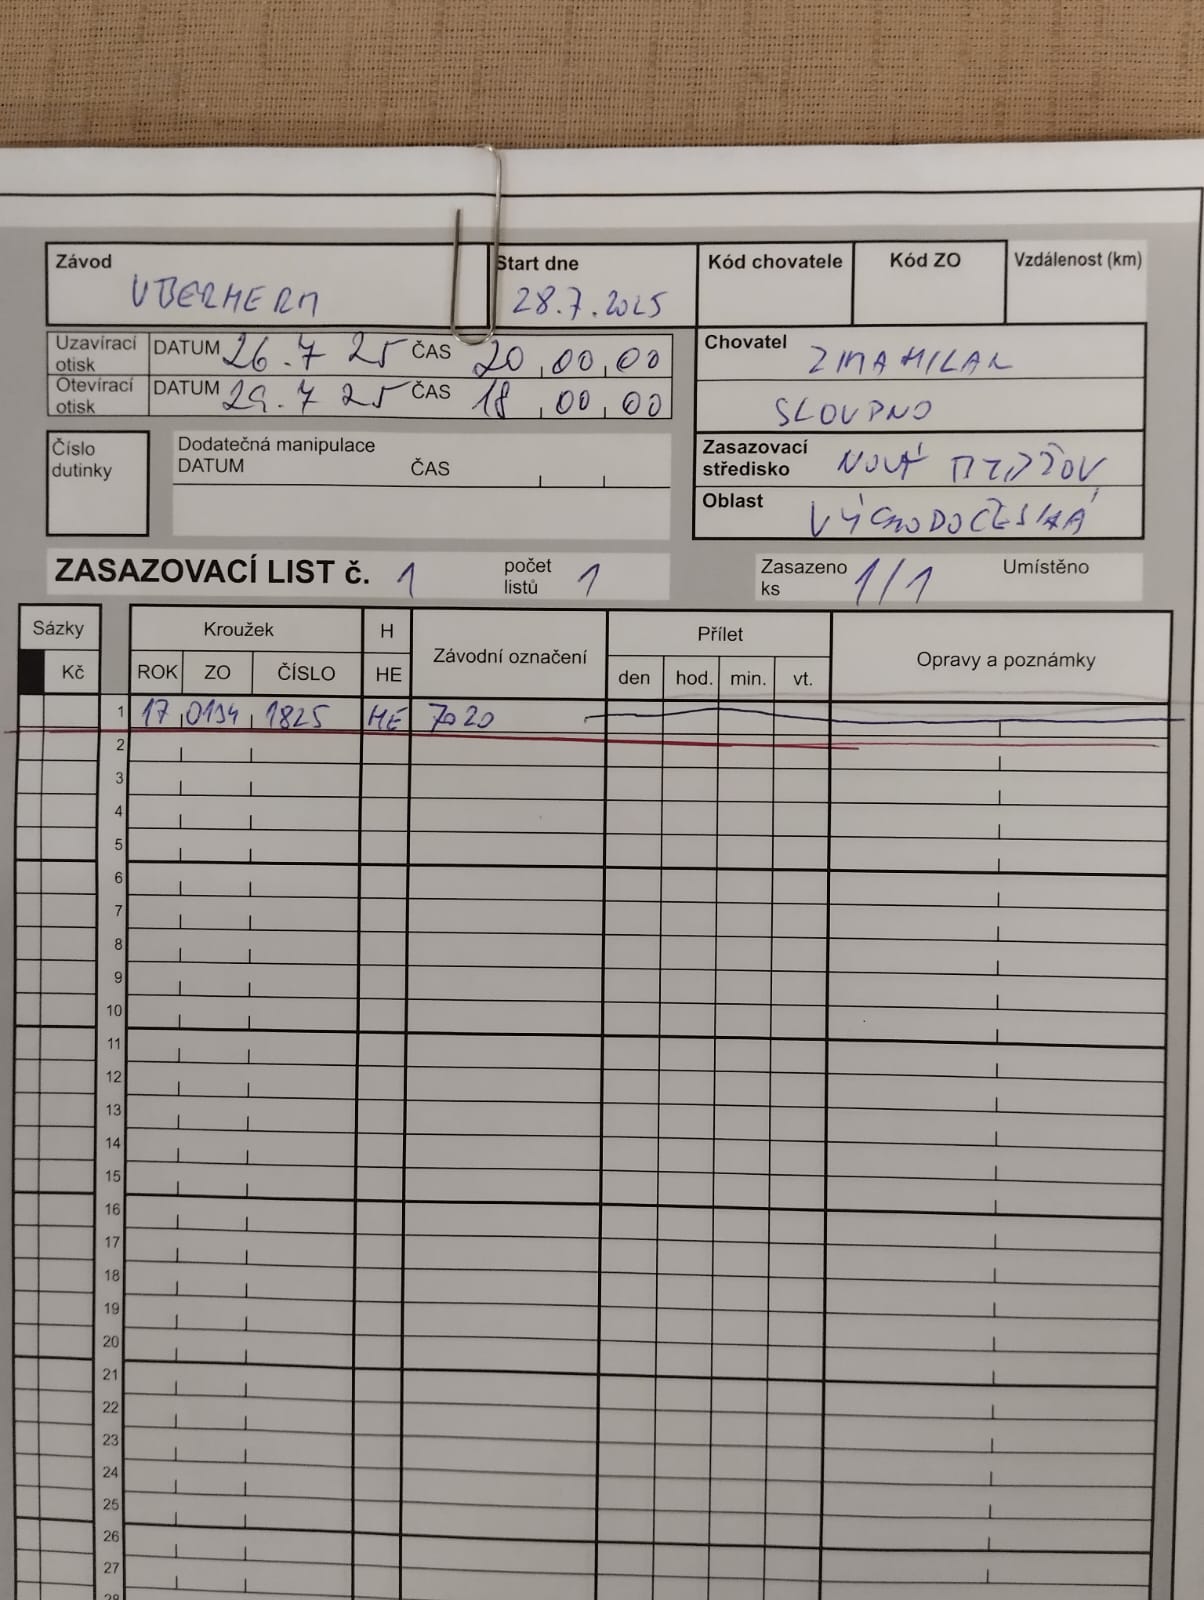 Závod Start dne Kód chovatele Kód ZO Vzdálenost (km)
UBERHERN 28.7.2025
Uzavírací otisk DATUM 26.7 25 ČAS 20,00,00
Otevírací otisk DATUM 29.7 25 ČAS 18,00,00
Chovatel ZMA MILAN
SLOUPNO
Číslo dutinky
Dodatečná manipulace
DATUM ČAS
Zasazovací středisko NOVÝ BYDŽOV
Oblast VÝCHODOČESKÁ
ZASAZOVACÍ LIST č. 1 počet listů 1 Zasazeno ks 1/1 Umístěno
Sázky Kroužek H Závodní označení Přílet Opravy a poznámky
Kč ROK ZO ČÍSLO HE den hod. min. vt.
1 17 0194 1825 HE 7020
2
3
4
5
6
7
8
9
10
11
12
13
14
15
16
17
18
19
20
21
22
23
24
25
26
27
28